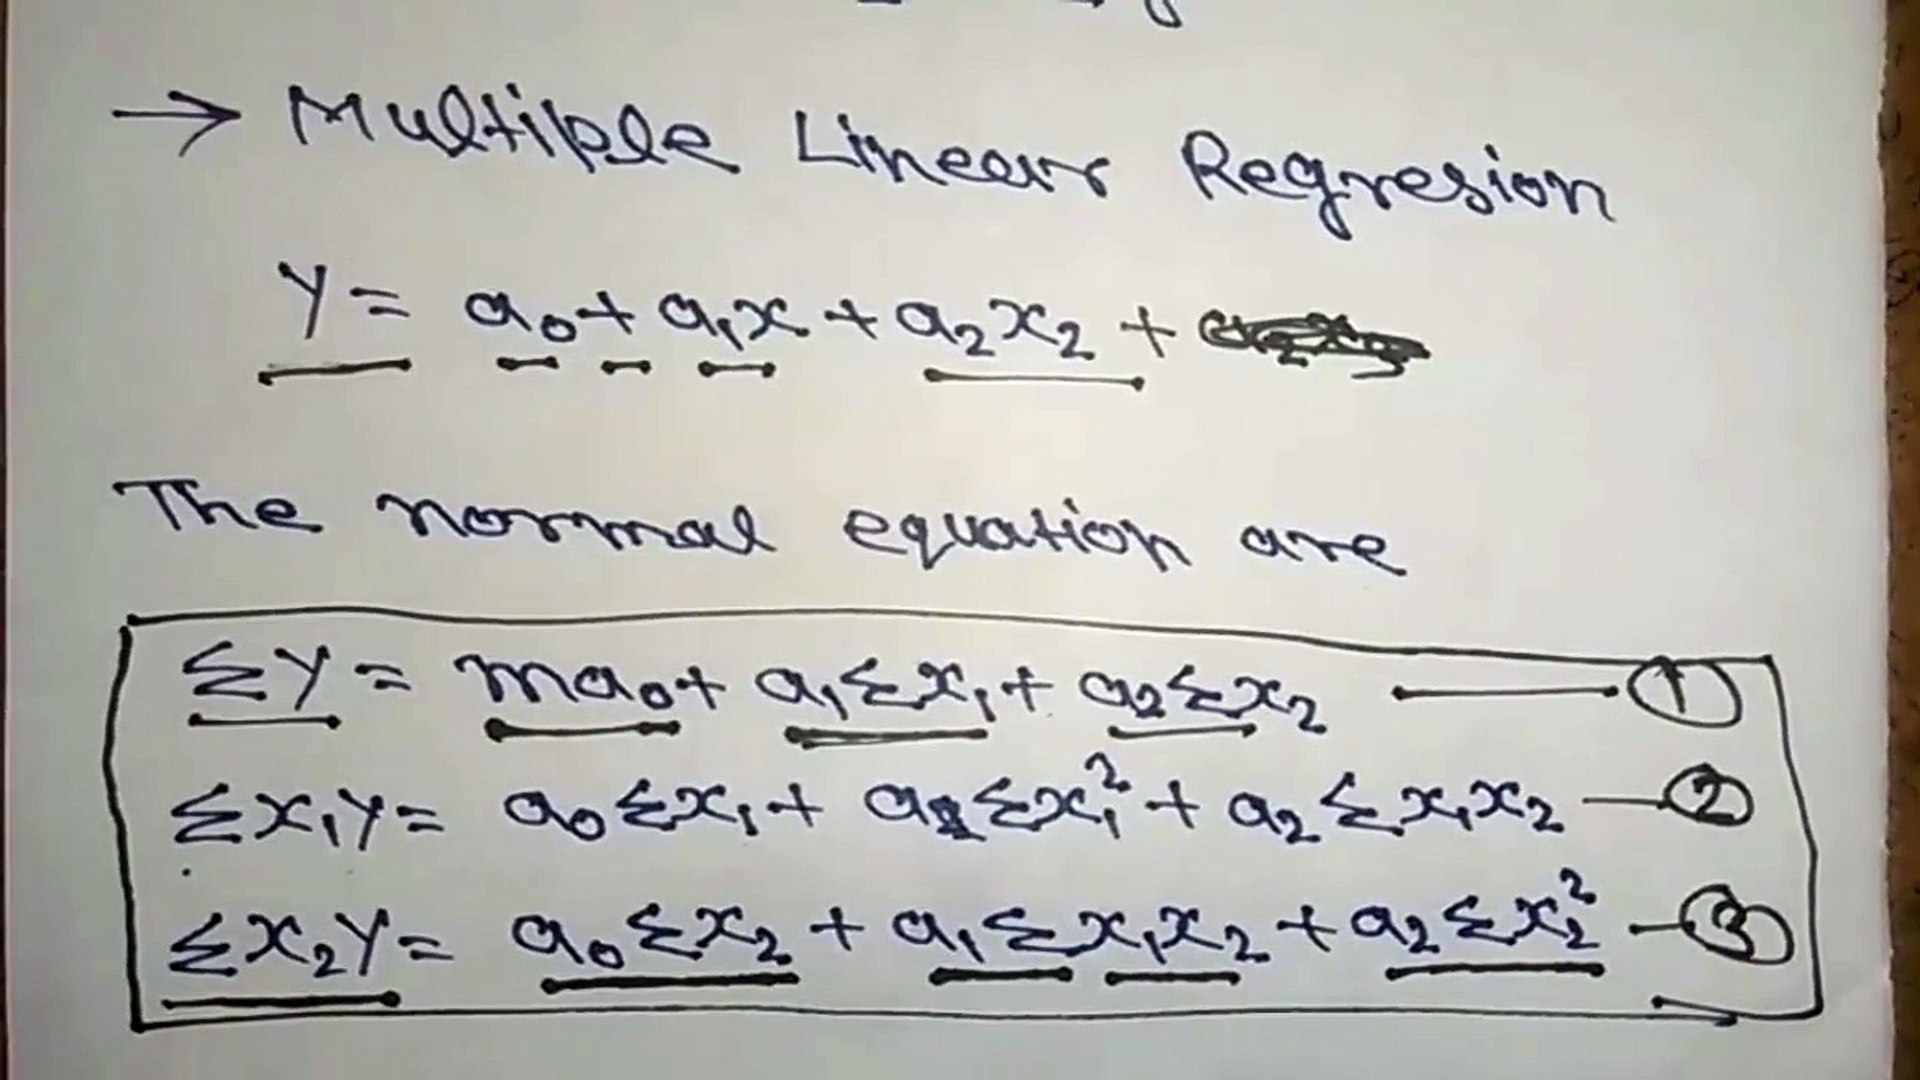 → Multiple Linear Regresion
Y = a₀ + a₁x + a₂x₂ +
The normal equation are
ΣY = ma₀ + a₁Σx₁ + a₂Σx₂ — ①
Σx₁Y = a₀Σx₁ + a₁Σx₁² + a₂Σx₁x₂ — ②
Σx₂Y = a₀Σx₂ + a₁Σx₁x₂ + a₂Σx₂² — ③